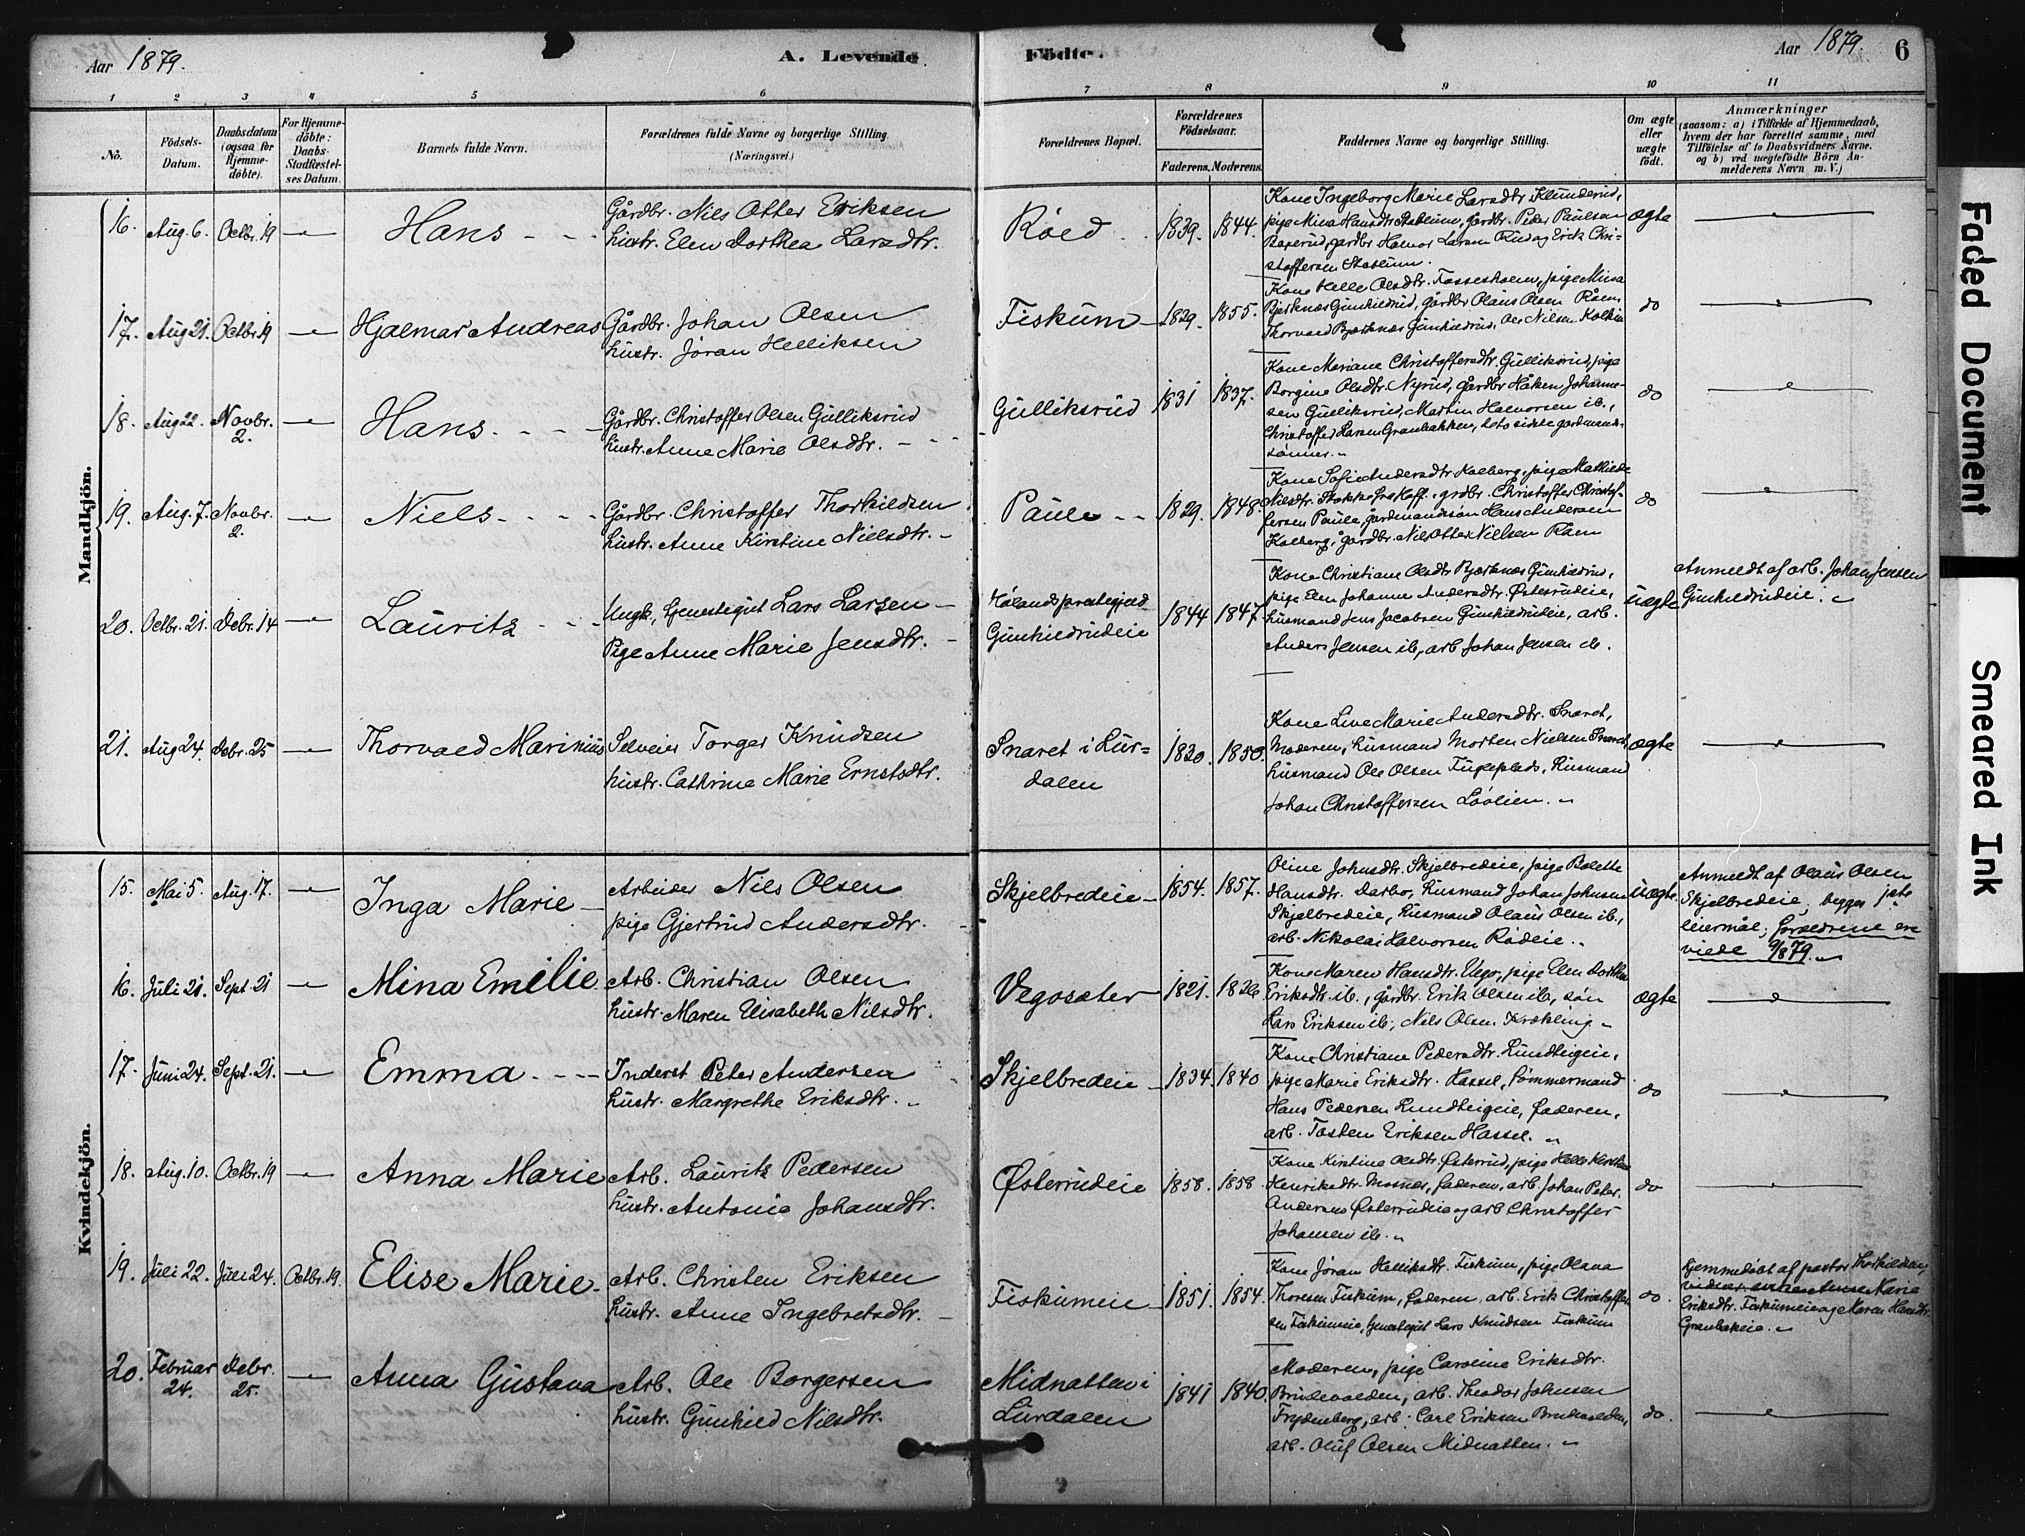 Aar 1879.
A. Levende
Födte.
Aar 1879.
6
1 2 3 4 5 6 7 8 9 10 11
No.
Födsels-
Datum.
Daabsdatum
(ogsaa for
Hjemme-
döbte).
For Hjemme-
döbte:
Daabs-
Stadfæstel-
ses Datum.
Barnets fulde Navn.
Forældrenes fulde Navne og borgerlige Stilling.
(Næringsvei.)
Forældrenes Bopæl.
Forældrenes
Födselsaar.
Faderens. Moderens.
Faddernes Navne og borgerlige Stilling.
Om ægte
eller
uægte
født.
Anmærkninger
(saasom: a) i Tilfælde af Hjemmedaab,
hvem der har forrettet samme, med
Tilföielse af to Daabsvidners Navne.
og b) ved uegtefödte Börn An-
melderens Navn m. V.)
Mandkjön.
16. Aug. 6. Octbr. 19 Hans
Gårdbr. Nils Otter Eriksen
hustr. Elen Dorthea Larsdtr.
Röed 1839. 1844.
Kone Ingeborg Marie Larsdtr. Klunderud,
pige Mina Hansdtr. Stablum, gårdbr. Peder Paulsen
gårdbr. Halvor Larsen Rud og Erik Chri-
stoffersen Stablum.
ægte
17. Aug 21. Octbr. 19 Hjalmar Andreas
Gårdbr. Johan Olsen
hustr. Jöran Helliksen
Fiskum 1829. 1855.
Kone Helle Olsdtr. Fossesholm, pige Mina
Bjerknæs Gunhildrud, gårdbr. Olaus Olsen Råen,
Thorvald Bjerknæs Gunhildrud, Ole Nilsen
do
18. Aug 22. Novbr. 2. Hans
Gårdbr. Christoffer Olsen Gulliksrud
hustr. Anne Marie Olsdtr.
Gulliksrud 1831 1837.
Kone Mariane Christoffersdtr. Gulliksrud, pige
Borgine Olsdtr. Nyrud, gårdbr. Håken Johanne-
sen Gulliksrud, Martin Halvorsen ib.,
Christoffer Larsen Granbakken, de to sidste gårdmands-
sönner.
do
19. Aug. 7. Novbr. 2. Niels
Gårdbr. Christoffer Thorkildsen
hustr. Anne Kirstine Nielsdtr.
Paule 1829. 1848.
Kone Sofie Andersdtr. Kolberg, pige Mathilde
Nilsdtr. Stokke, grdbr. Christoffer Christof-
fersen Paule, gårdmandssön Hans Andersen
Kolberg, gårdbr. Nils Otter Nielsen Råen
do
20. Octbr. 21. Debr. 14 Lauritz
Ungk., tjenestegut Lars Larsen
Pige Anne Marie Jensdtr.
Hölands præstegjeld
Gunhildrudeie 1844 1847.
Kone Christiane Olsdtr. Bjerknæs Gunhildrud,
pige Elen Johanne Andersdtr. Østerudeie,
husmand Jens Jacobsen Gunhildrudeie, arb.
Anders Jensen ib., arb. Johan Jensen ib.
uægte
Anmeldt af arb. Johan Jensen
Gunhildrudeie.
21. Aug 24. Debr. 25 Thorvald Marinius
Selveier Torger Knudsen
hustr. Cathrine Marie Ernstsdtr.
Snaret i Lur=
dalen 1830. 1850.
Kone Live Marie Andersdtr. Snaret,
Moderen, husmand Morten Nielsen Snaret,
husmand Ole Olsen Fugleplads, husmand
Johan Christoffersen Lövlien.
ægte
Kvindekjön.
15. Mai 5. Aug. 17. Inga Marie
Arbeider Nils Olsen
pige Gjertrud Andersdtr.
Skjelbredeie 1854. 1857.
Oline Johnsdtr. Skjelbredeie, pige Bolette
Hansdtr. Darbo, husmand Johan Johnsen
Skjelbredeie, husmand Olaus Olsen ib.,
arb. Nikolai Halvorsen Rödeie.
uægte
Anmeldt af Olaus Olsen
Skjelbredeie, begges 1ste
leiermål; forældrene ere
viede 9/8 79.
16. Juli 21. Sept. 21 Mina Emilie
Arb. Christian Olsen
hustr. Maren Elisabeth Nilsdtr.
Vegosæter 1821. 1836
Kone Maren Hansdtr. Vego, pige Elen Dorthea
Eriksdtr. ib., gårdbr. Erik Olsen ib., sön
Lars Eriksen ib., Nils Olsen Krækling.
ægte
17. Juni 24. Sept. 21. Emma
Inderst Peter Andersen
hustr. Margrethe Eriksdtr.
Skjelbredeie 1834. 1840
Kone Christiane Pedersdtr. Lundteigeie,
pige Marie Eriksdtr. Hassel, Tömmermand
Hans Pedersen Lundteigeie, faderen,
arb. Tosten Eriksen Hassel.
do
18. Aug. 10. Octbr. 19 Anna Marie
Arb. Lauritz Pedersen
hustr. Antonie Johansdtr.
Østerudeie 1858. 1858.
Kone Kirstine Olsdtr. Østerud, pige Helle Kirstine
Henriksdtr. Mosnes, faderen, arb. Johan Peter
Andersen Østerrudeie og arb. Christoffer
Johansen ib.
do
19. Juli 22. Juli 24. Octbr. 19. Elise Marie
Arb. Christen Eriksen
hustr. Anne Ingebretsdtr.
Fiskumeie 1851. 1854.
Kone Jöran Helliksdtr. Fiskum, pige Olava
Thoresen Fiskum, faderen, arb. Erik Christoffer-
sen Fiskumeie, tjenestegut Lars Knudsen Fiskum
do.
hjemmedöbt af pastor Thorkildsen,
vidner: Anne Marie
Eriksdtr. Fiskumeie og Maren Hansdtr.
Granbakeie.
20. Februar 24. Debr. 25. Anna Gustava
Arb. Ole Borgersen
hustr. Gunhild Nilsdtr.
Midnatten i
Lurdalen 1841 1840.
Moderen, pige Caroline Eriksdtr.
Brudevolden, arb. Theodor Johnsen
Frydenberg, arb. Carl Eriksen Brudevolden,
arb. Oluf Olsen Midnatten.
do.
Faded Document
Smeared Ink